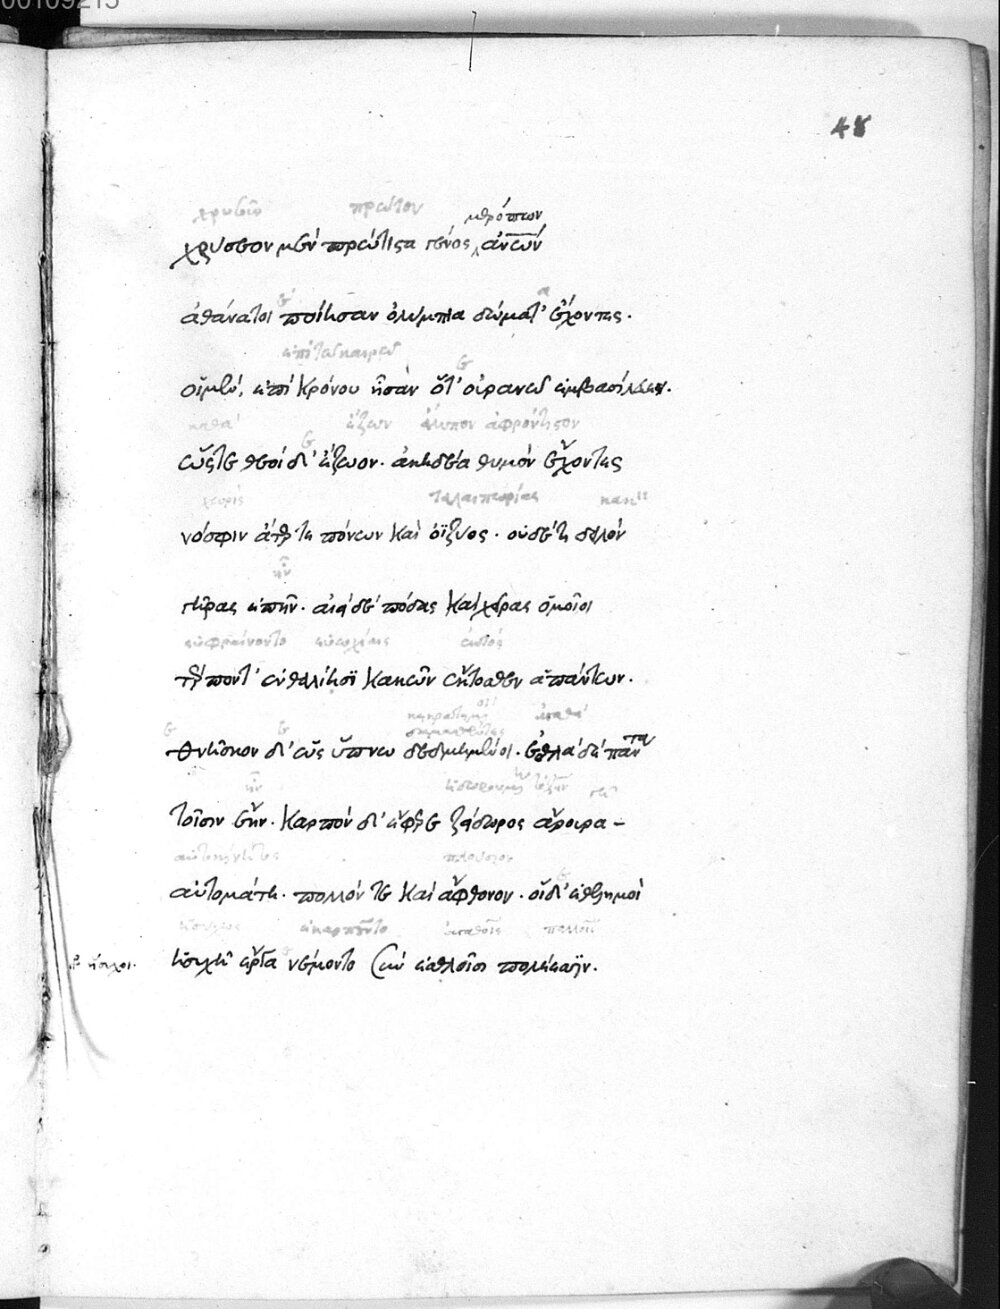 48
χρυσοῦν πρῶτον
μερόπων
χρύσεον μὲν πρώτιστα γένος ἀν̅ων̅
ἀθάνατοι ποίησαν ὀλύμπια δώματ' ἔχοντες.
ἐπὶ τοῦ καιροῦ
οἵμὲν, ἐπὶ κρόνου ἦσαν ὅτ' οὐρανῶ ἐμβασίλευεν.
ἔζων ἄλυπον ἀφρόντιστον
ὥστε θεοὶ δ' ἔζωον. ἀκηδέα θυμὸν ἔχοντες
χωρὶς ταλαιπωρίας
νόσφιν ἄτερ τε πόνων καὶ ὀϊζύος. οὐδέ τι δειλὸν
ἦν
γῆρας ἐπῆν. αἰεὶ δὲ πόδας καὶ χεῖρας ὁμοῖοι
εὐφραίνοντο εὐωχίαις ἐκτὸς
τέρποντ' ἐν θαλίησι κακῶν ἔκτοσθεν ἁπάντων.
ἀγαθὰ
θνῆσκον δ' ὡς ὕπνω δεδμημένοι. ἐσθλὰ δὲ πάντα
ἦν
τοῖσιν ἔην. καρπὸν δ' ἔφερε ζείδωρος ἄρουρα
πλούσιον
αὐτομάτη. πολλόν τε καὶ ἄφθονον. οἵδ' ἐθελημοὶ
ἀγαθοῖς πολλοῖς
ἥσυχοι.
ἥσυχοι ἔργα νέμοντο σὺν ἐσθλοῖσι πολέεσσιν.